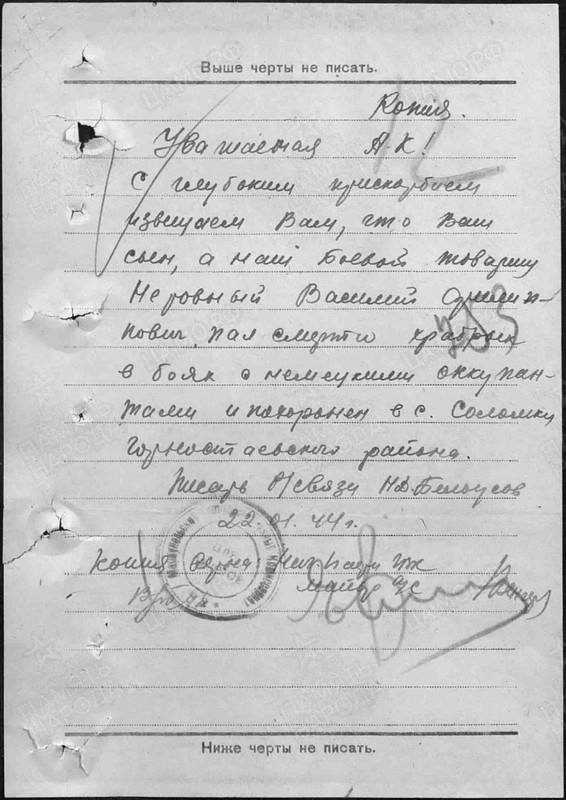 Выше черты не писать.
Копия.
Уважаемая А.К!
С глубоким прискорбием
извещаем Вам, что Ваш
сын, а наш боевой товарищ
Неровный Василий
пович, пал смертю храбрых
в боях с немецкими оккупан-
тами и похоронен в с. Соломки
Горностаевского района.
Писарь П/связи Н.Д.Белоусов
22.01.44г.
Копия верна:
майор
Ниже черты не писать.